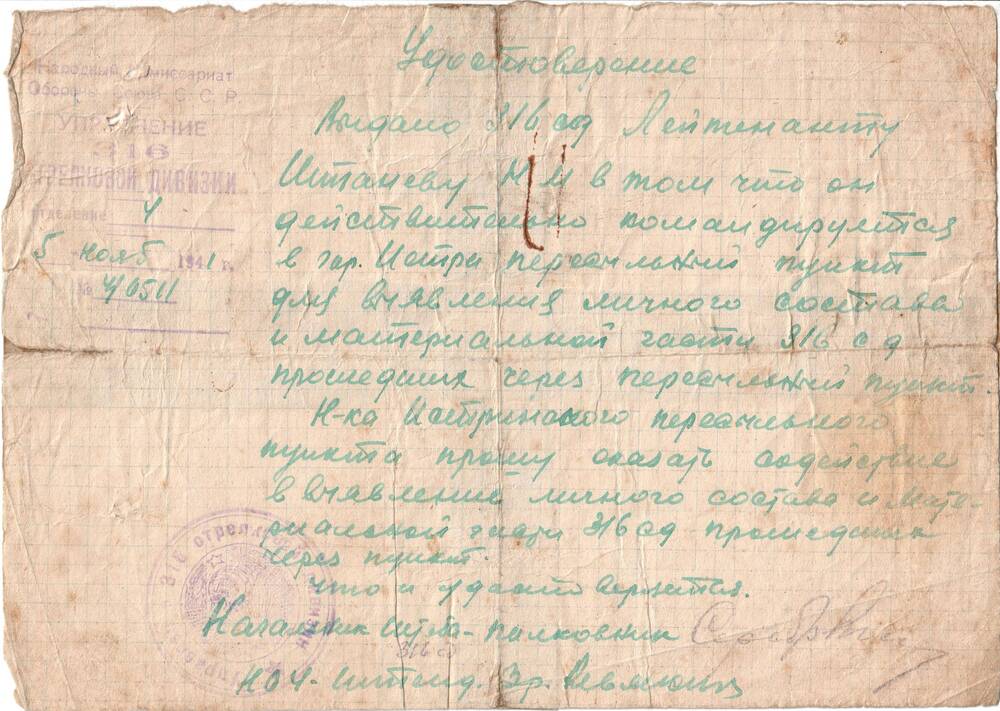 Удостоверение
Народный Комиссариат
Обороны Союза С. С. Р.
УПРАВЛЕНИЕ
316
СТРЕЛКОВОЙ ДИВИЗИИ
отделение 4
5 нояб 1941 г.
№ 4/0511
Выдано 316 сд Лейтенанту
Иштаневу Н М в том что он
действительно командируется
в гор. Истри пересыльный пункт
для выявления личного состава
и материальной части 316 сд
прошедших через пересыльный пункт.
Н-ка Истринского пересыльного
пункта прошу оказать содействие
в выявлений личного состава и мате-
риальной части 316 сд прошедших
через пункт.
что и удостоверяется.
Начальник штаба - полковник
316 сд
НОЧ - интенд. 3р. Ревякин
316 стрелковой